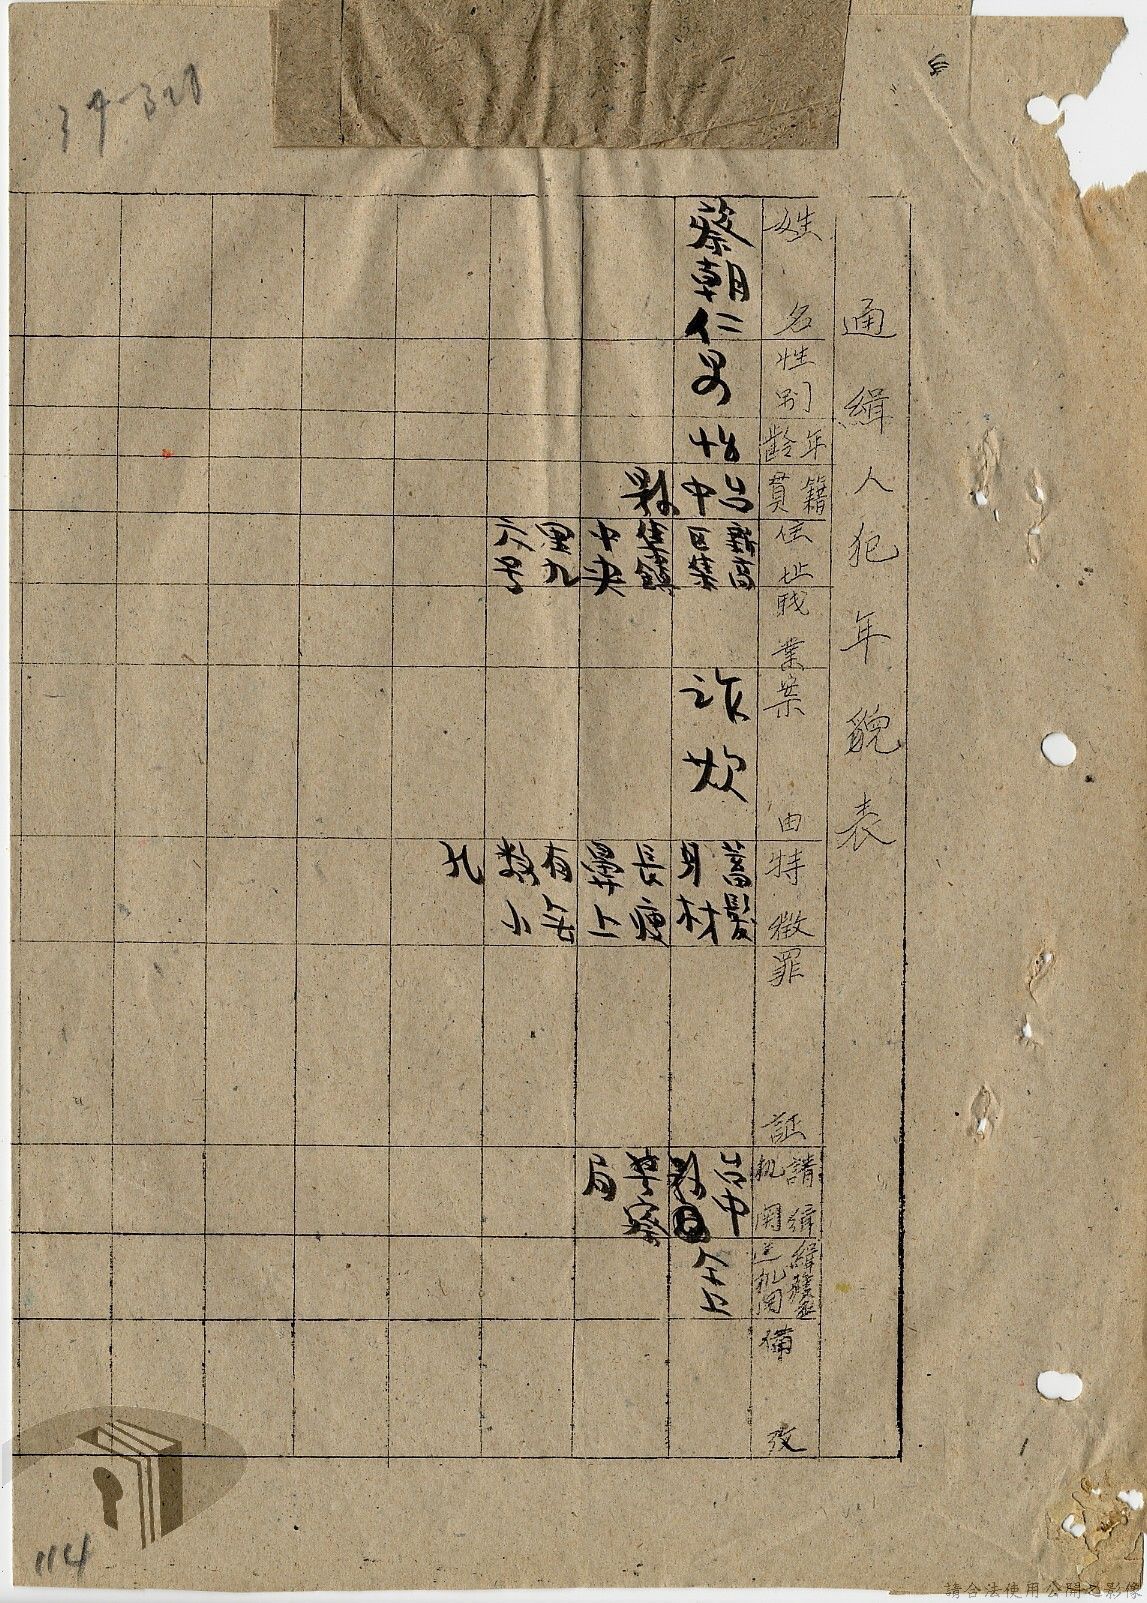 通緝人犯年貌表
姓名
性別
年齡
籍貫
住址
職業
案由
特徵
罪証
請緝机関
緝獲送机関
備攷
蔡朝仁
男
台中
縣
新高
区集
集鎮
中央
里九
六号
詐欺
蓄髮
身材
長瘦
鼻上
有
數小
孔
台中
縣
警察
局
仝上
114
請合法使用公開之影像